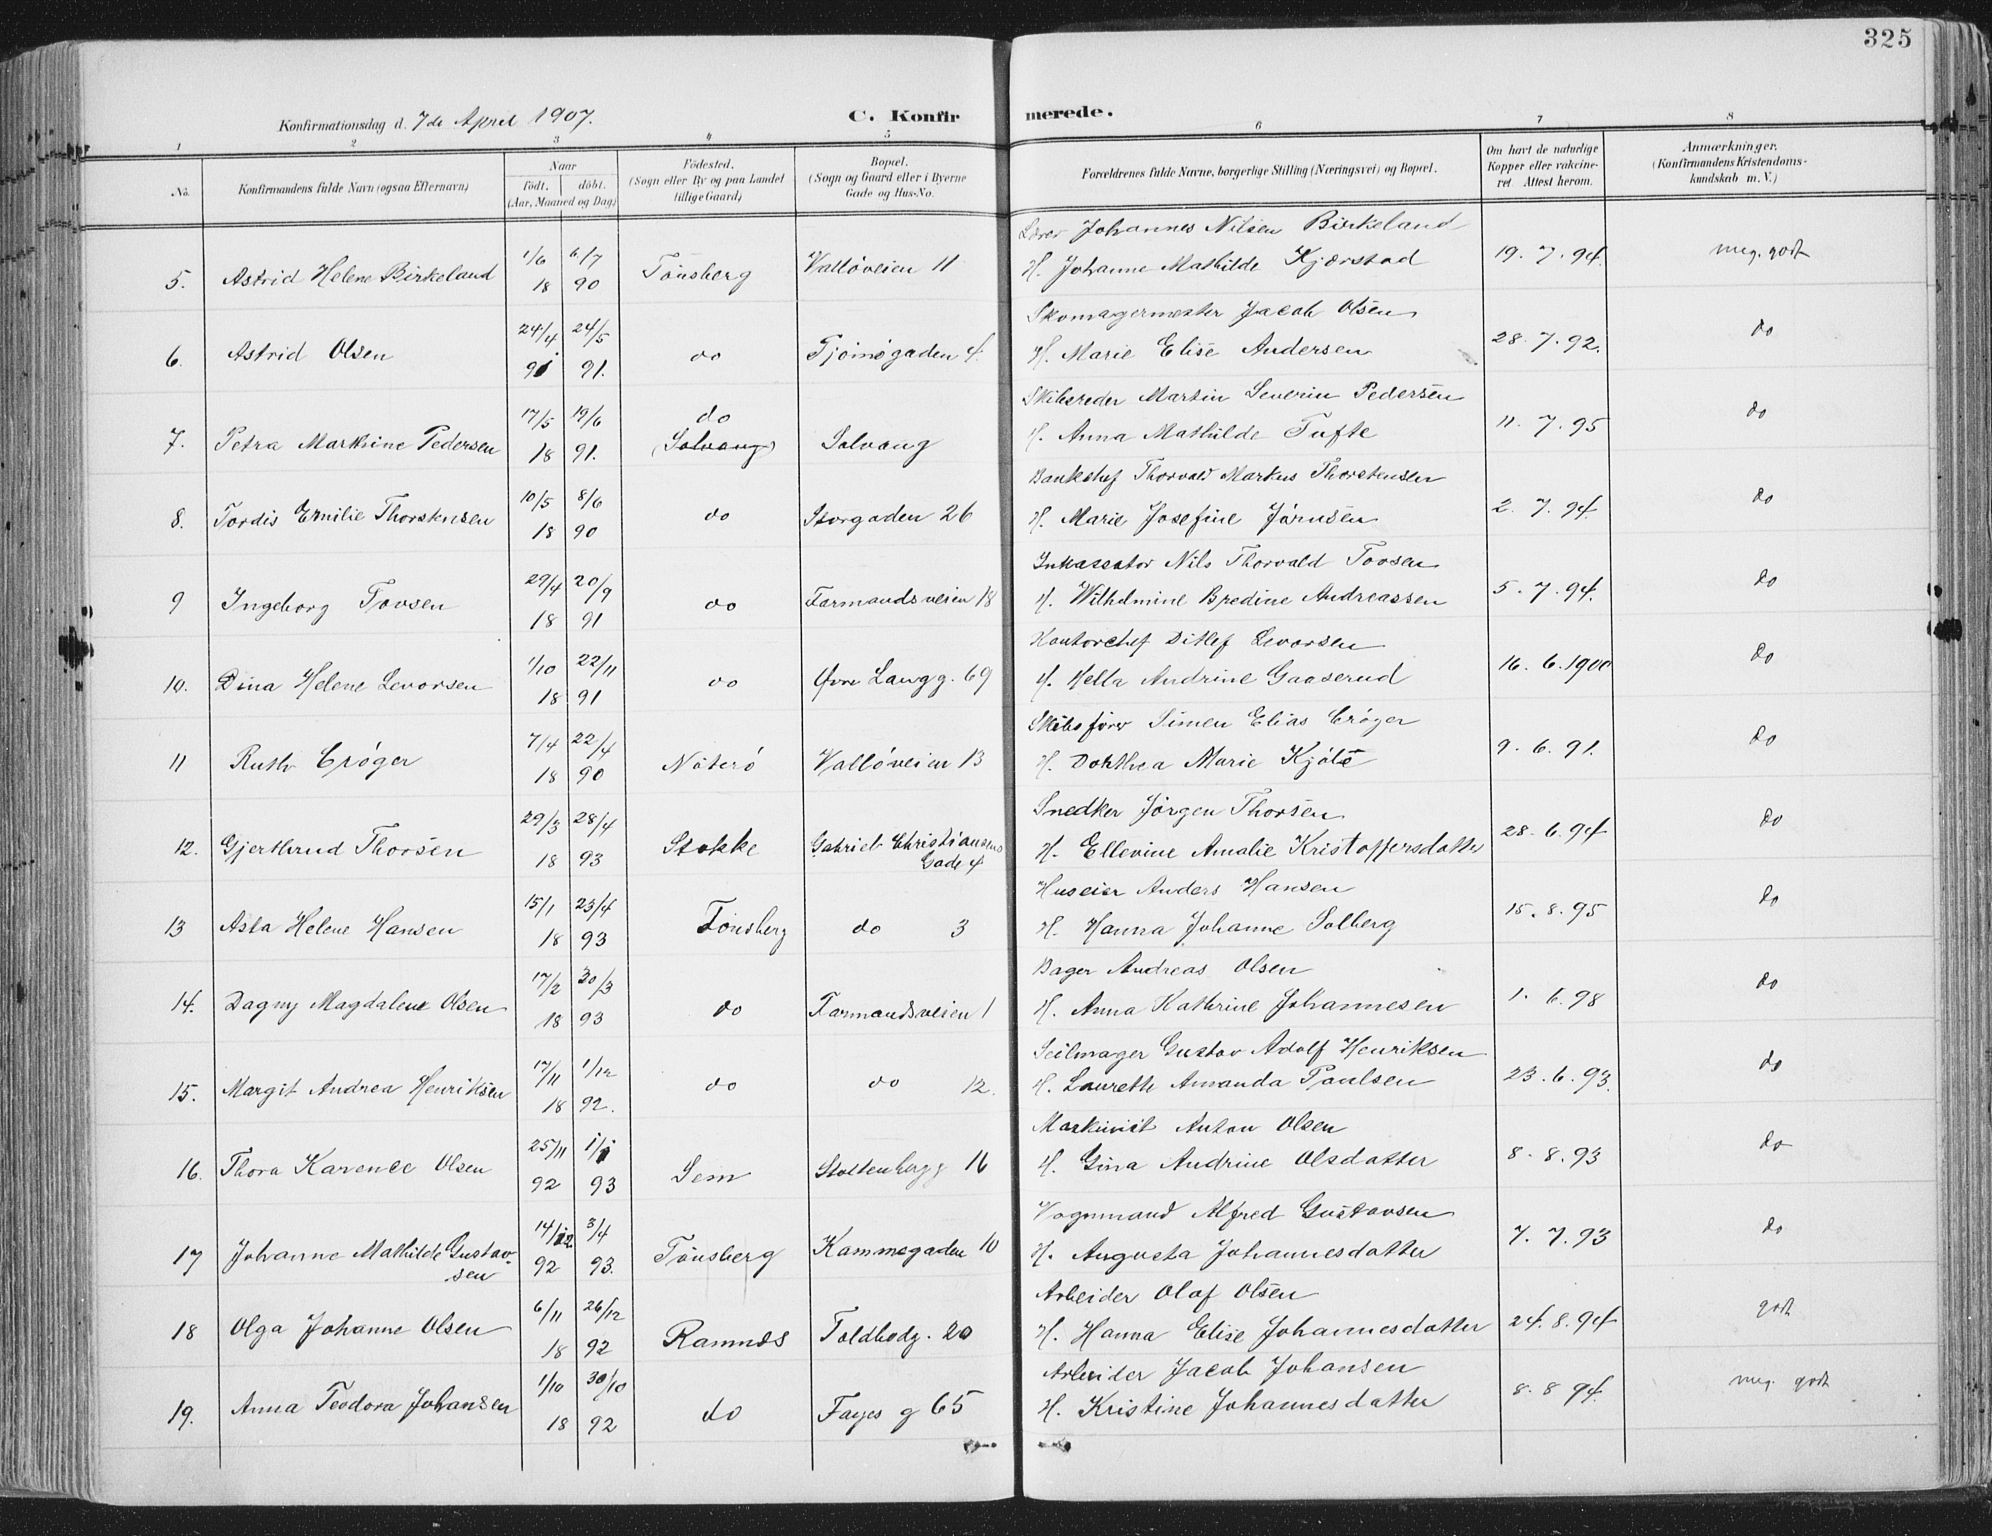 325
Konfirmationsdag d. 7de April 1907. C. Konfirmerede.
1 2 3 4 5 6 7 8
No. Konfirmandens fulde Navn (ogsaa Efternavn) Naar födt. döbt. (Aar, Maaned og Dag) Födested. (Sogn eller By og paa Landet tillige Gaard) Bopæl. (Sogn og Gaard eller i Byerne Gade og Hus-No. Forældrenes fulde Navne, borgerlige Stilling (Næringsvei) og Bopæl. Om havt de naturlige Kopper eller vakcineret. Attest herom. Anmærkninger. (Konfirmandens Kristendomskundskab m. V.)
Lærer Johannes Nilsen Birkeland
5. Astrid Helene Birkeland 1/6 18 6/7 90 Tönsberg Vallöveien 11 H. Johanne Mathilde Kjærstad 19. 7. 94. meg. godt
Skomagermester Jacob Olsen
6. Astrid Olsen 24/4 91 24/5 91. do Tjömögaden 4. H. Marie Elise Andersen 28. 7. 92. do
Skibsreder Martin Severin Pedersen
7. Petra Markine Pedersen 17/5 18 19/6 91. do (Solvang) Solvang H. Anna Mathilde Tufte 11. 7. 95 do
Bankchef Thorvald Markus Thorstensen
8. Tordis Emilie Thorstensen 10/5 18 8/6 90 do Storgaden 26 H. Marie Josefine Jörnsen 2. 7. 94. do
Inkassator Nils Thorvald Tovsen
9 Ingeborg Tovsen 29/4 18 20/9 91 do Farmandsveien 18 H. Wilhelmine Bredine Andreassen 5. 7. 94. do
Kontorchef Ditlef Levorsen
10. Dina Helene Levorsen 1/10 18 22/11 91 do Øvre Langg. 69 H. Hella Andrine Gaaserud 16. 6. 1900 do
Skibsförer Simen Elias Cröger
11 Ruth Cröger 7/4 18 22/4 90 Nöterö Vallöveien 13 H. Dorthea Marie Kjölö 9. 6. 91. do
Snedker Jörgen Thorsen
12. Gjerthrud Thorsen 29/3 18 28/4 93 Stokke Gabriel Christiansens Gade 4 H. Ellevine Amalie Kristoffersdatter 28. 6. 94 do
Huseier Anders Hansen
13 Asta Helene Hansen 15/1 18 23/4 93 Tönsberg do 3 H. Hanna Johanne Solberg 15. 8. 95 do
Bager Andreas Olsen
14. Dagny Magdalene Olsen 17/2 18 30/3 93 do Farmandsveien 1 H. Anna Kathrine Johannesen 1. 6. 98 do
Seilmager Gustav Adolf Henriksen
15. Margit Andrea Henriksen 17/11 18 1/12 92. do do 12. H. Laurette Amanda Paulsen 23. 6. 93. do
Maskinist Anton Olsen
16. Thora Karence Olsen 25/11 92 1/1 93 Sem Stoltenbergg 16 H. Gina Andrine Olsdatter 8. 8. 93 do
Vognmand Alfred Gustavsen
17 Johanne Mathilde Gustavsen 14/12 92 3/4 93. Tönsberg Kammegaden 10 H. Augusta Johannesdatter 7. 7. 93 do
Arbeider Olaf Olsen
18 Olga Johanne Olsen 6/11 18 26/12 92 Ramnes Toldbodg. 20 H. Hanna Elise Johannesdatter 24. 8. 94 godt
Arbeider Jacob Johansen
19. Anna Teodora Johansen 1/10 18 30/10 92 do Fayes g 65 H. Kristine Johannesdatter 8. 8 94. meg. godt